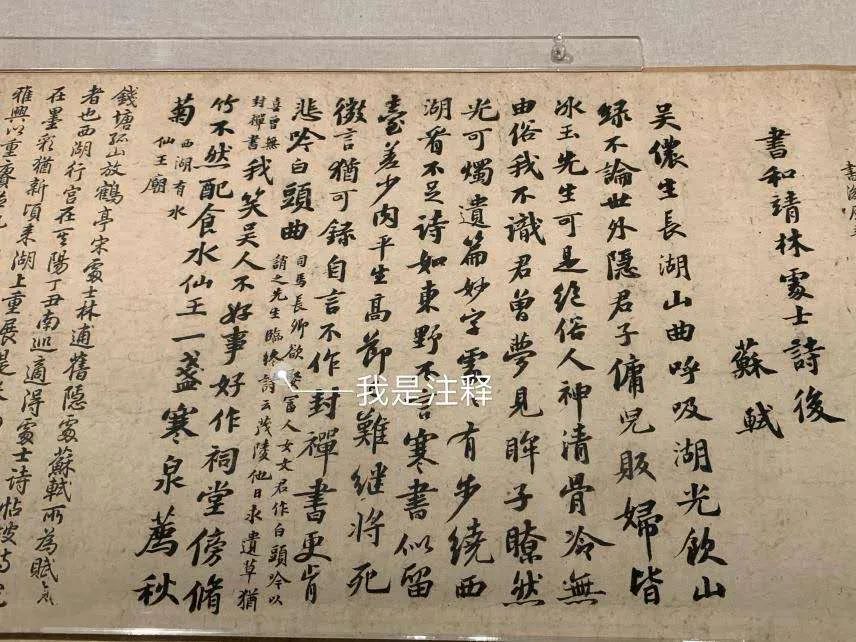 書和靖林處士詩後
蘇軾
吳儂生長湖山曲呼吸湖光飲山
綠不論世外隱君子傭兒販婦皆
冰玉先生可是絕俗人神清骨冷無
由俗我不識君曾夢見眸子瞭然
光可燭遺篇妙字處有步繞西
湖看不足詩如東野不言寒書似留
臺差少肉平生高節難繼將死
微言猶可錄自言不作封禪書更肯
悲吟白頭曲
司馬長卿欲娶富人女文君作白頭吟以
誚之先生臨終詩云茂陵他日求遺草猶
喜曾無
封禪書
我笑吳人不好事好作祠堂傍脩
竹不然配食水仙王一盞寒泉薦秋
菊
西湖有水
仙王廟
錢塘孤山放鶴亭宋處士林逋舊隱處蘇軾所為賦
者也西湖行宮在其陽丁丑南巡適得處士詩帖
在墨彩猶新頃來湖上重展
雅興以重賡
我是注释